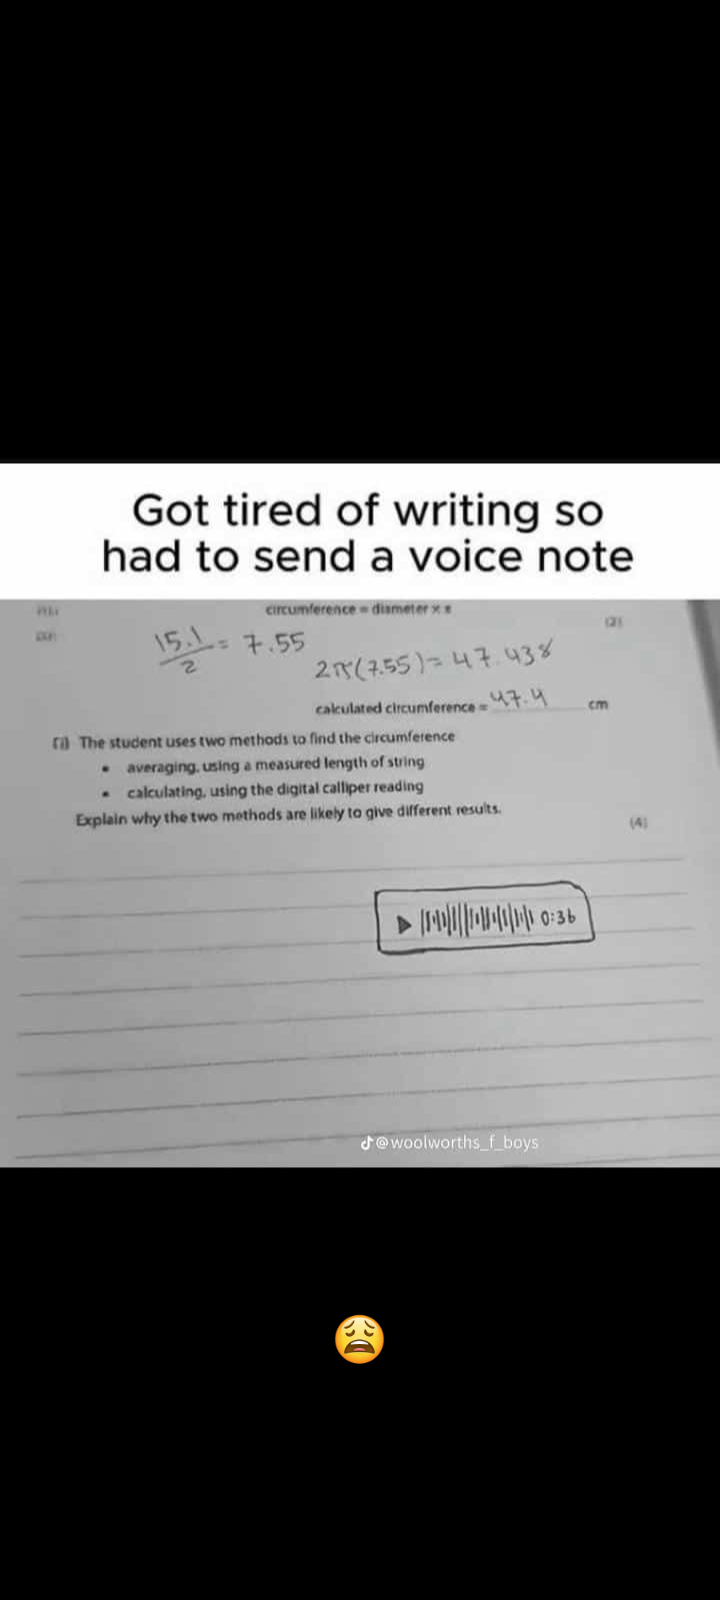 Got tired of writing so
had to send a voice note
circumference = diameter × π
(2)
15.1/2 = 7.55
2π(7.55) = 47.438
calculated circumference = 47.4 cm
The student uses two methods to find the circumference
• averaging, using a measured length of string
• calculating, using the digital calliper reading
Explain why the two methods are likely to give different results.
(4)
0:36
@woolworths_f_boys